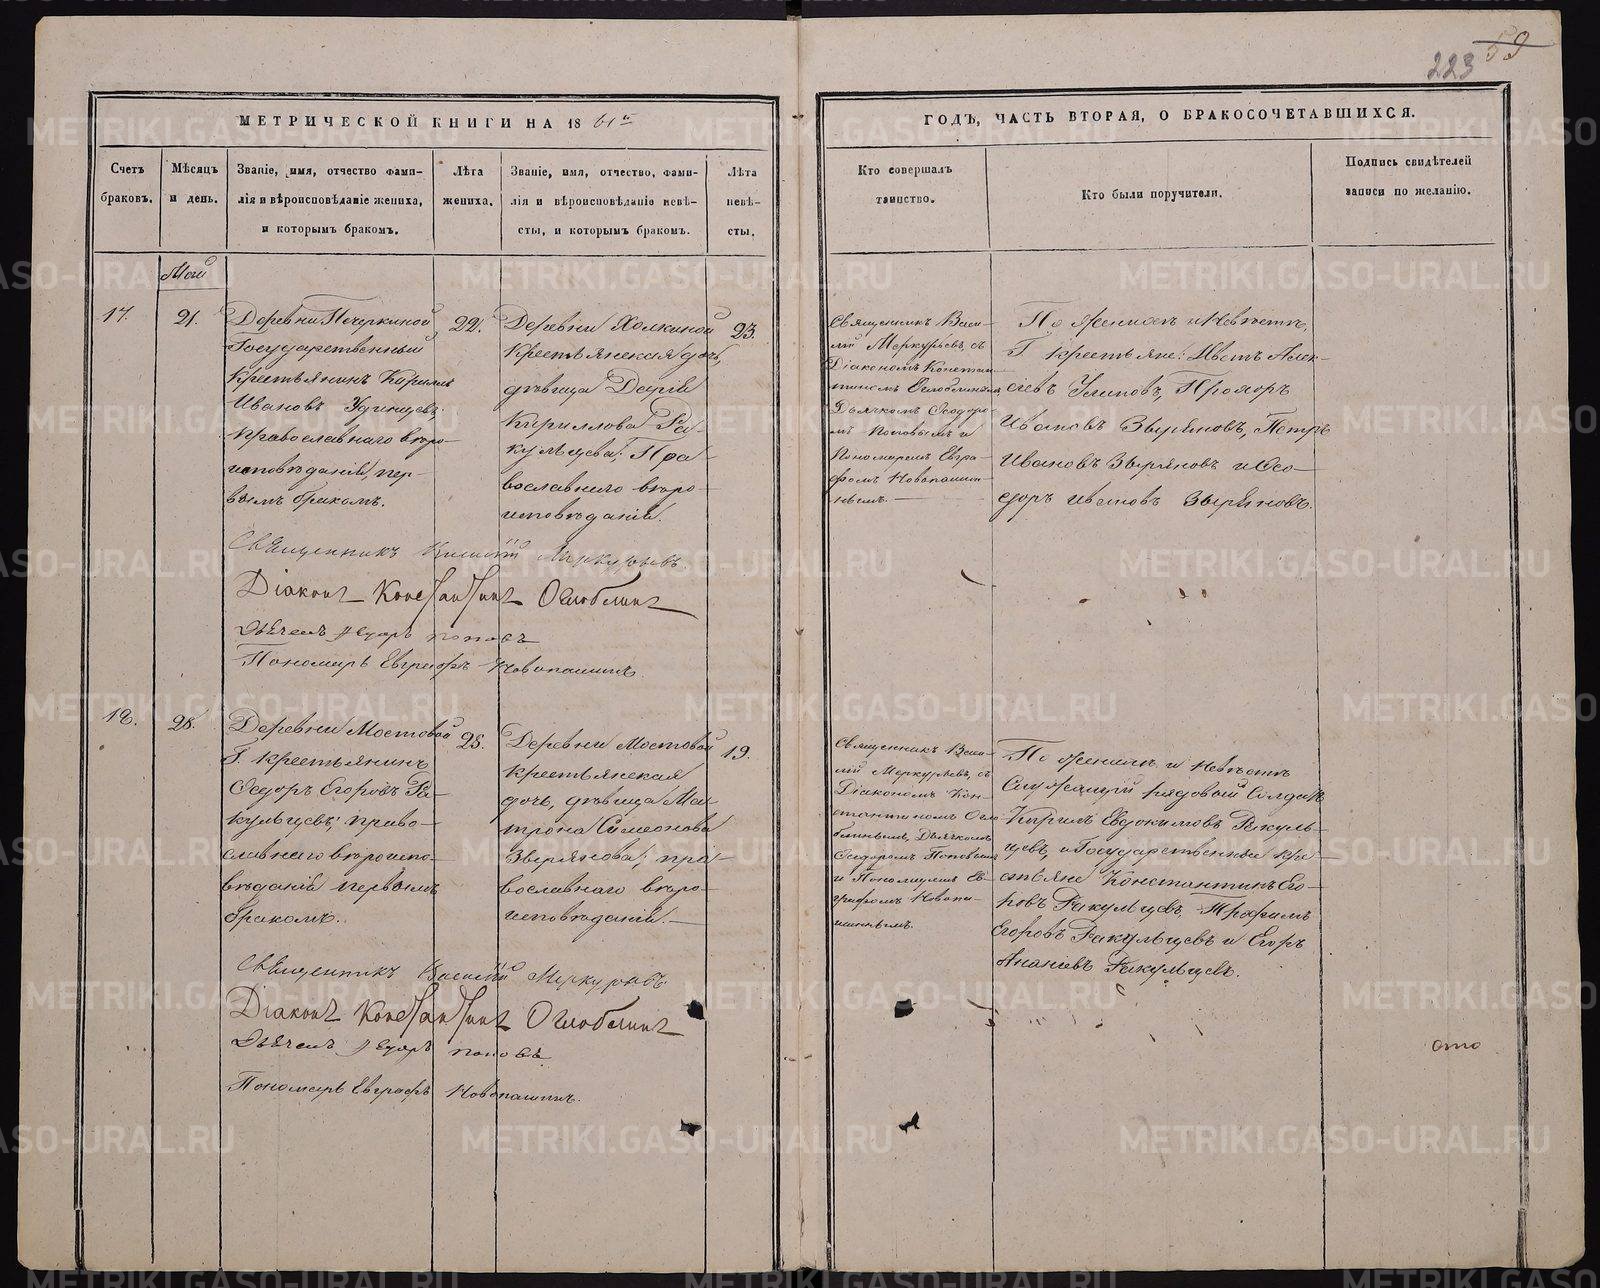 223 59
МЕТРИЧЕСКОЙ КНИГИ НА 1861й
ГОДЪ, ЧАСТЬ ВТОРАЯ, О БРАКОСОЧЕТАВШИХСЯ.
Счетъ браковъ.
Мѣсяцъ и день.
Званіе, имя, отчество фами-
лія и вѣроисповѣданіе жениха,
и которымъ бракомъ.
Лѣта
жениха.
Званіе, имя, отчество, фами-
лія и вѣроисповѣданіе невѣ-
сты, и которымъ бракомъ.
Лѣта
невѣ-
сты.
Кто совершалъ
таинство.
Кто были поручители.
Подпись свидѣтелей
записи по желанію.
Май
17.
21.
Деревни Печеркиной
Государственный
крестьянинъ Кириллъ
Ивановъ Удинцевъ
православнаго вѣро-
исповѣданія, пер-
вымъ бракомъ.
22.
Деревни Холкиной
крестьянская дочь,
дѣвица Дарія
Кириллова Ра-
кульцева, Пра-
вославнаго вѣро-
исповѣданія.
23.
Священникъ Васи-
лій Меркурьевъ, съ
Діакономъ Констан-
тиномъ Оглоблинымъ,
Дьячкомъ Ѳеодоро-
мъ Поповымъ и
Пономаремъ Евгра-
фомъ Новопашин-
нымъ.
По женихѣ и невѣстѣ,
Г. крестьяне: Алек-
сіевъ Прохоръ
Ивановъ Зыряновъ, Петръ
Ивановъ Зыряновъ и Ѳео-
доръ Ивановъ Зыряновъ.
Священникъ Василій Меркурьевъ.
Діаконъ Константинъ Оглоблинъ
Дьячекъ Ѳедоръ Поповъ
Пономарь Евграфъ Новопашинъ.
18.
28.
Деревни Мостовой
Г. крестьянинъ
Ѳедоръ Егоровъ Ра-
кульцевъ, право-
славнаго вѣроиспо-
вѣданія первымъ
бракомъ.
25.
Деревни Мостовой
крестьянская
дочь, дѣвица Ма-
трона Симеонова
Зырянова, пра-
вославнаго вѣро-
исповѣданія.
19.
Священникъ Васи-
лій Меркурьевъ, съ
Діакономъ Кон-
стантиномъ Огло-
блинымъ, Дьячкомъ
Ѳедоромъ Поповымъ
и Пономаремъ Ев-
графомъ Новопа-
шинымъ.
По женихѣ и невѣстѣ
Служащій рядовый Солдатъ
Кирилъ Евдокимовъ Ракуль-
цевъ, и Государственные кре-
стьяне Константинъ Его-
ровъ Ракульцевъ, Трофимъ
Егоровъ Ракульцевъ и Егоръ
Ананіевъ Ракульцевъ.
Священникъ Василій Меркурьевъ.
Діаконъ Константинъ Оглоблинъ
Дьячекъ Ѳедоръ Поповъ
Пономарь Евграфъ Новопашинъ.
METRIKI.GASO-URAL.RU